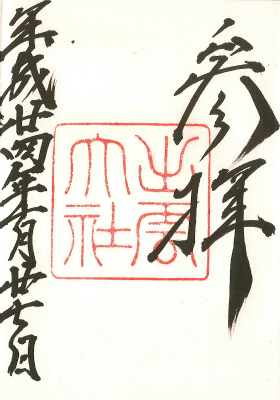 参拝
出雲
大社
平成廿四年月廿七日